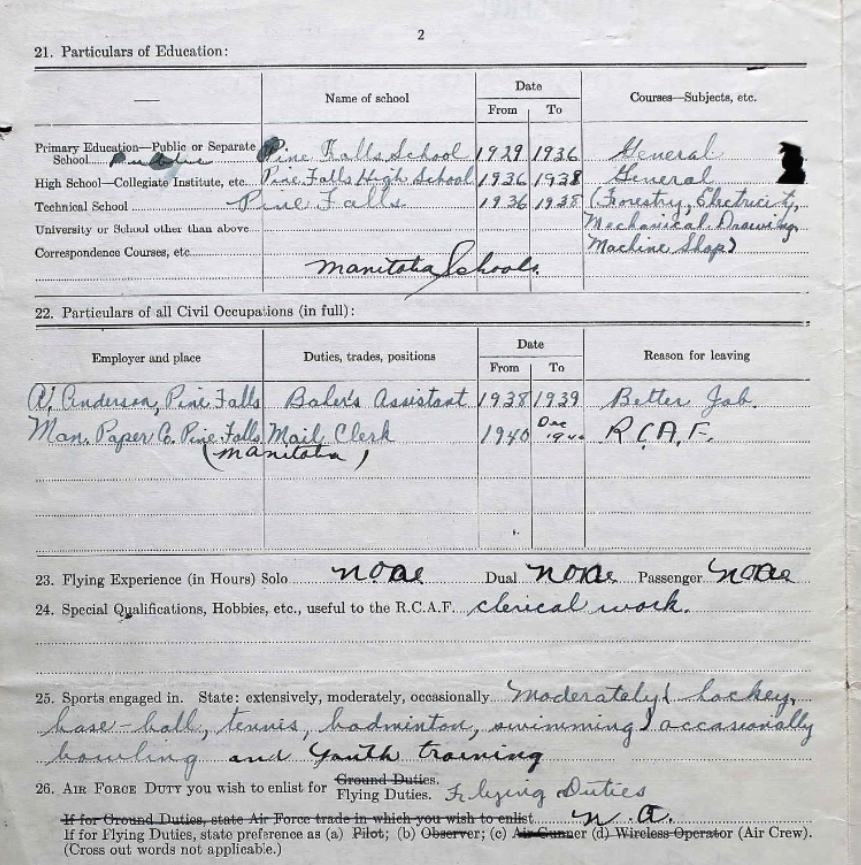 2
21. Particulars of Education:
— Name of school Date Courses—Subjects, etc.
From To
Primary Education—Public or Separate School Public Pine Falls School 1929 1936 General
High School—Collegiate Institute, etc. Pine Falls High School 1936 1938 General
Technical School Pine Falls 1936 1938 (Forestry, Electricity,
University or School other than above Mechanical Drawing,
Correspondence Courses, etc. Machine Shop)
Manitoba Schools.
22. Particulars of all Civil Occupations (in full):
Employer and place Duties, trades, positions Date Reason for leaving
From To
Anderson, Pine Falls Baker's Assistant 1938 1939 Better Job.
Man. Paper Co. Pine Falls Mail Clerk 1940 Dec R.C.A.F.
(Manitoba)
23. Flying Experience (in Hours) Solo none Dual none Passenger none
24. Special Qualifications, Hobbies, etc., useful to the R.C.A.F. clerical work.
25. Sports engaged in. State: extensively, moderately, occasionally Moderately ( hockey,
base-ball, tennis, badminton, swimming) occasionally
bowling and Youth training
26. AIR FORCE DUTY you wish to enlist for Ground Duties.
Flying Duties. Flying Duties
If for Ground Duties, state Air Force trade in which you wish to enlist n.a.
If for Flying Duties, state preference as (a) Pilot; (b) Observer; (c) Air Gunner (d) Wireless Operator (Air Crew).
(Cross out words not applicable.)